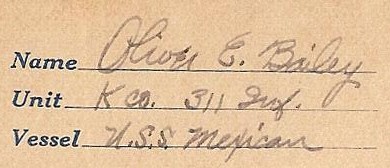 Name Oliver E. Bailey
Unit K co. 311 Inf.
Vessel U.S.S. Mexican